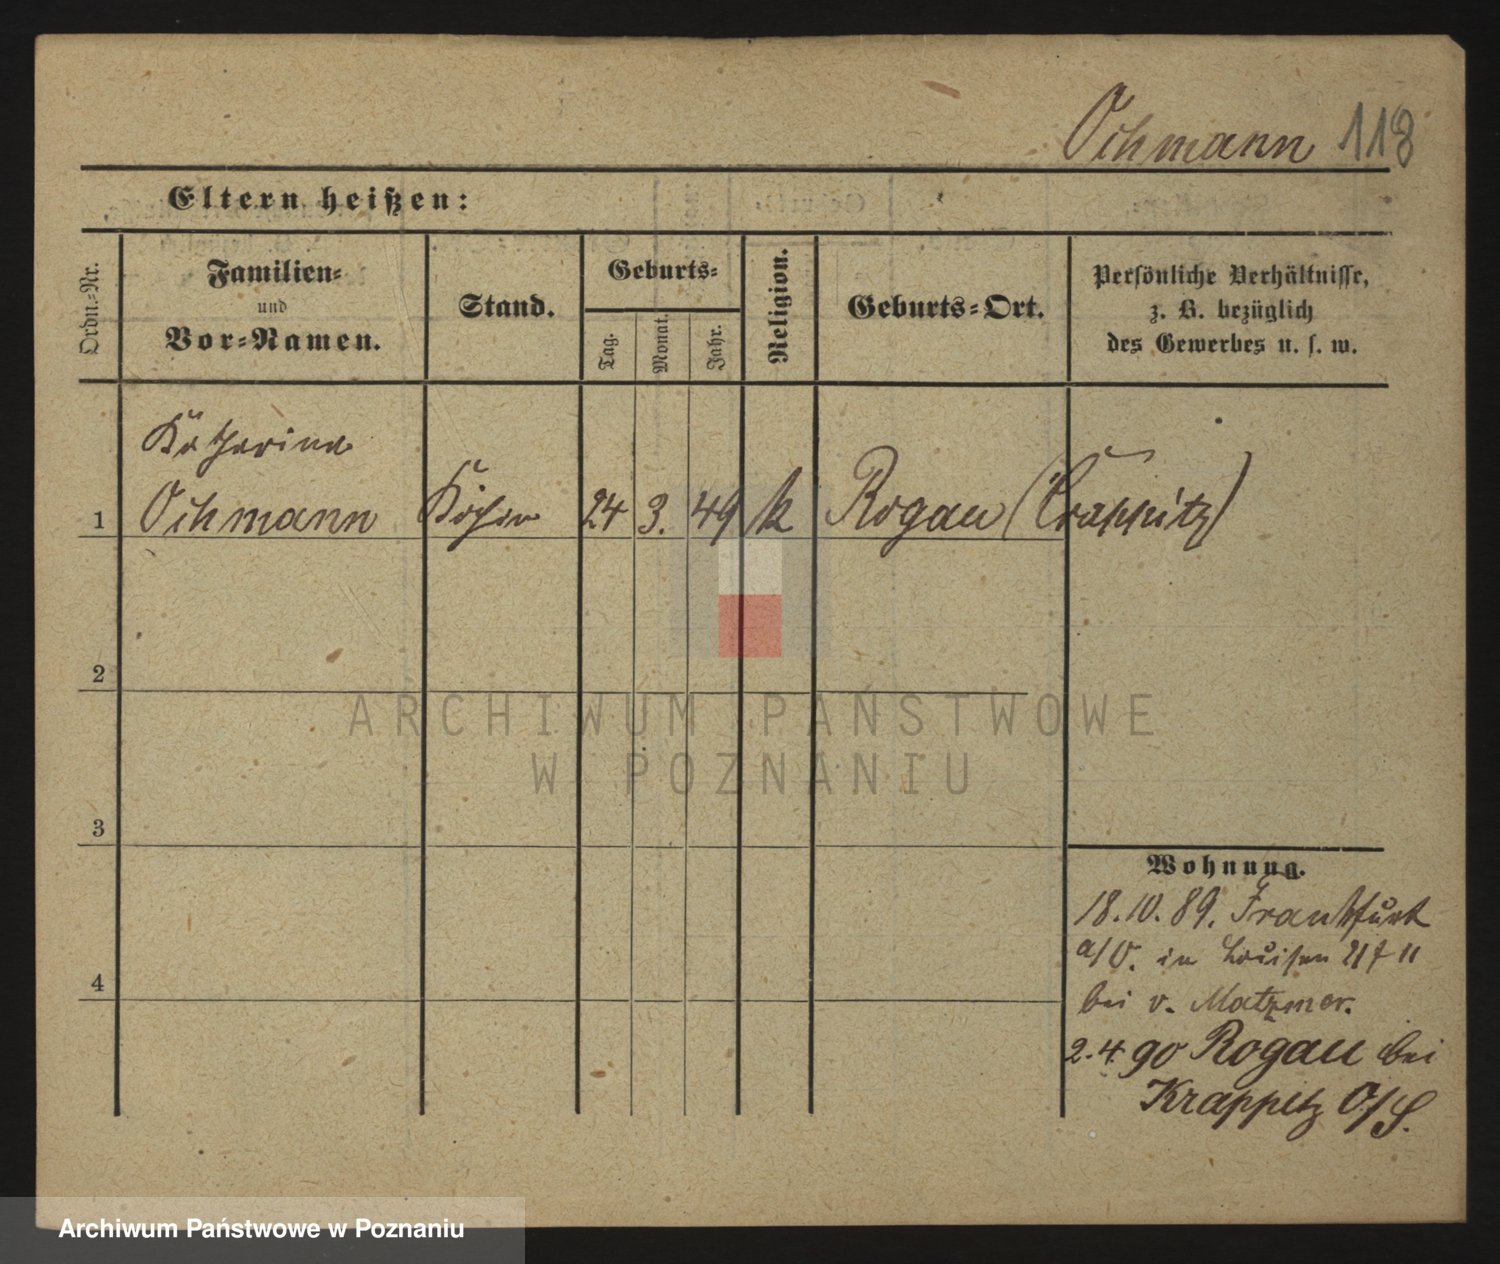 Ochmann 118
Eltern heißen:
Ordn.-Nr.
Familien-
und
Vor-Namen.
Stand.
Geburts-
Tag.
Monat.
Jahr.
Religion.
Geburts-Ort.
Persönliche Verhältnisse,
z. B. bezüglich
des Gewerbes u. s. w.
Katharina
1 Ochmann Köchin 24 3. 49 k Rogau (Krappitz)
2
3
4
Wohnung.
18.10.89. Frankfurt
a/O. in Louisen
bei v.
2.4 90 Rogau bei
Krappitz O/S.
ARCHIWUM PAŃSTWOWE
W POZNANIU
Archiwum Państwowe w Poznaniu